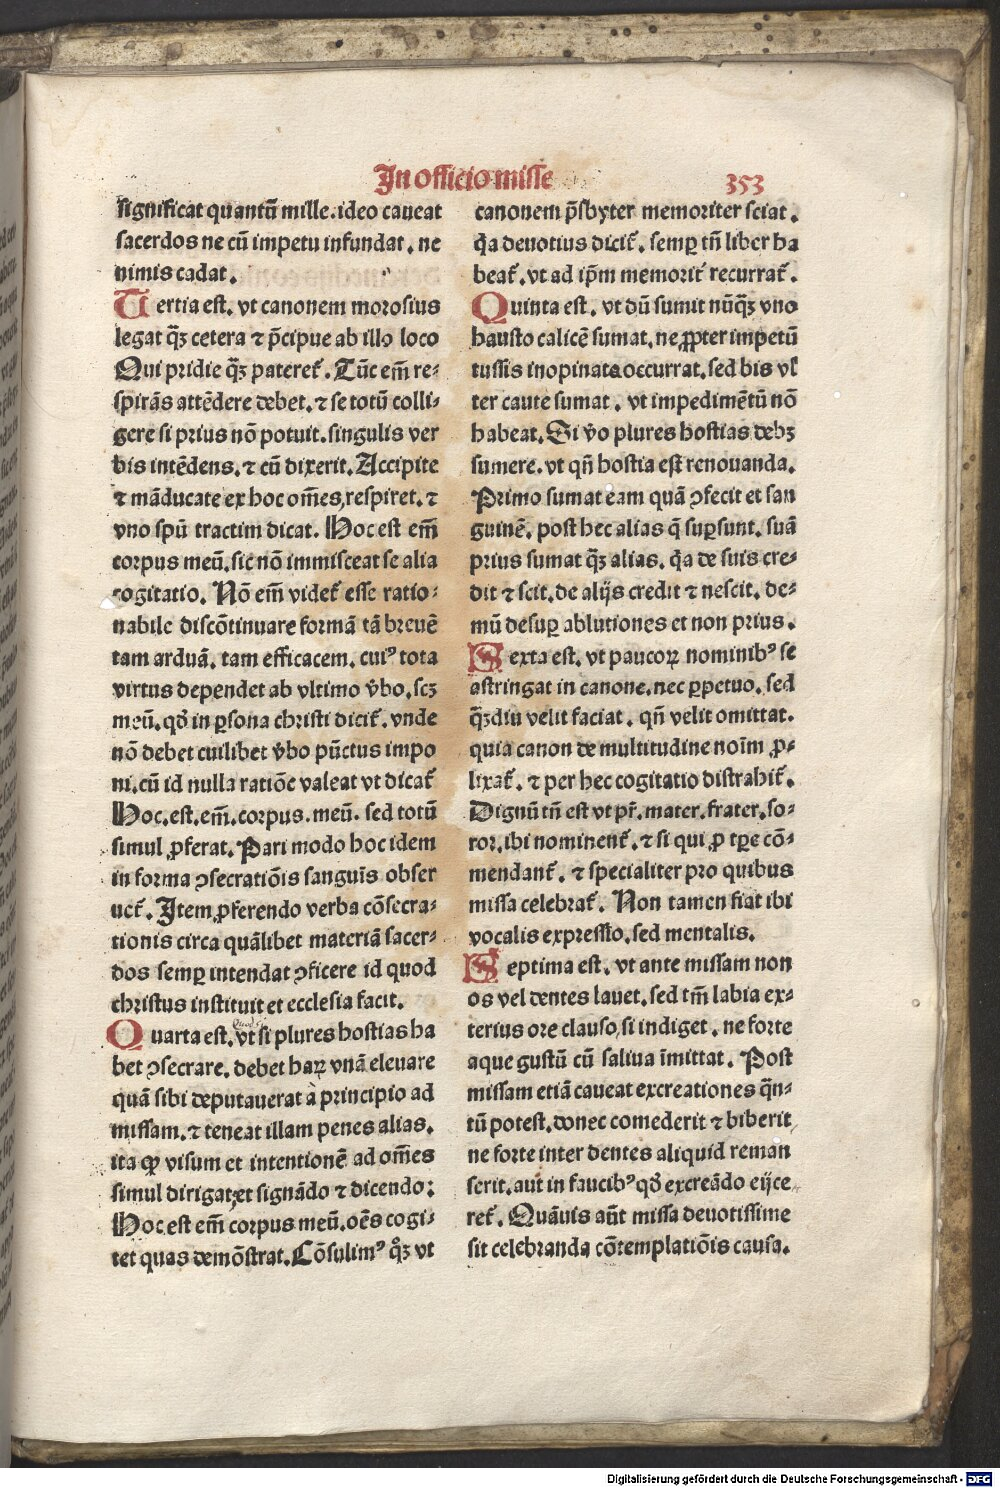 In officio misse
353
significat quantũ mille. ideo caueat
sacerdos ne cũ impetu infundat. ne
nimis cadat.
Tertia est. vt canonem morosius
legat q̃ꝫ cetera ⁊ p̃cipue ab illo loco
Qui pridie q̃ꝫ pateret̃. Tũc em̃ re⸗
spirãs attẽdere debet. ⁊ se totũ colli⸗
gere si prius nõ potuit. singulis ver
bis intẽdens. ⁊ cũ dixerit. Accipite
⁊ mãducate ex hoc om̃es, respiret. ⁊
vno spũ tractim dicat. Hoc est em̃
corpus meũ. sic nõ immisceat se alia
cogitatio. Nõ em̃ videt̃ esse ratio⸗
nabile discõtinuare formã tã breuẽ
tam arduã. tam efficacem. cuiꝰ tota
virtus dependet ab vltimo v̆bo. scꝫ
meũ. qđ in ꝑsona christi dicit̃. vnde
nõ debet cuilibet v̆bo pũctus impo
ni. cũ id nulla ratiõe valeat vt dicat̃
Hoc. est. em̃. corpus. meũ. sed totũ
simul ꝓferat. Pari modo hoc idem
in forma ꝯsecratiõis sanguĩs obser
uet̃. Item ꝓferendo verba cõsecra⸗
tionis circa quãlibet materiã sacer⸗
dos semꝑ intendat ꝯficere id quod
christus instituit et ecclesia facit.
Quarta est. vt si plures hostias ha
bet ꝯsecrare. debet haꝝ vnã eleuare
quã sibi deputauerat a principio ad
missam. ⁊ teneat illam penes alias.
ita ꝙ visum et intentionẽ ad om̃es
simul dirigat, et signãdo ⁊ dicendo:
Hoc est em̃ corpus meũ. oẽs cogi⸗
tet quas demõstrat. Cõsulimꝰ q̊ꝫ vt
canonem p̃sbyter memoriter sciat.
q̃a deuotius dicit̃. semꝑ tñ liber ha
beat̃. vt ad ip̃m memorit̃ recurrat̃.
Quinta est. vt dũ sumit nũq̃ꝫ vno
haustu calicẽ sumat. ne ꝓpter impetũ
tussis inopinate occurrat. sed bis vl̃
ter caute sumat. vt impedimẽtũ nõ
habeat. Si v̆o plures hostias debꝫ
sumere. vt qñ hostia est renouanda.
Primo sumat eam quã ꝯfecit et san
guinẽ. post hec alias q̃ suꝑsunt. suã
prius sumat q̃ꝫ alias. q̃a de suis cre⸗
dit ⁊ scit. de alijs credit ⁊ nescit. de⸗
mũ desuꝑ ablutiones et non prius.
Sexta est. vt paucoꝝ nominibꝰ se
astringat in canone. nec ꝑpetuo. sed
q̃ꝫdiu velit faciat. qñ velit omittat.
quia canon de multitudine noĩm ꝓ⸗
lixat̃. ⁊ per hec cogitatio distrahit̃.
Dignũ tñ est vt pr̃. mater. frater. so⸗
ror. ibi nominent̃. ⁊ si qui ꝓ tꝑe cõ⸗
mendant̃. ⁊ specialiter pro quibus
missa celebrat̃. Non tamen fiat ibi
vocalis expressio. sed mentalis.
Septima est. vt ante missam non
os vel dentes lauet. sed tm̃ labia ex⸗
terius ore clauso, si indiget. ne forte
aque gustũ cũ saliua ĩmittat. Post
missam etiã caueat excreationes q̃n⸗
tũ potest. donec comederit ⁊ biberit
ne forte inter dentes aliquid reman
serit. aut in faucibꝰ qđ excreãdo eijce
ret̃. Quãuis aũt missa deuotissime
sit celebranda cõtemplatiõis causa.
Digitalisierung gefördert durch die Deutsche Forschungsgemeinschaft - DFG